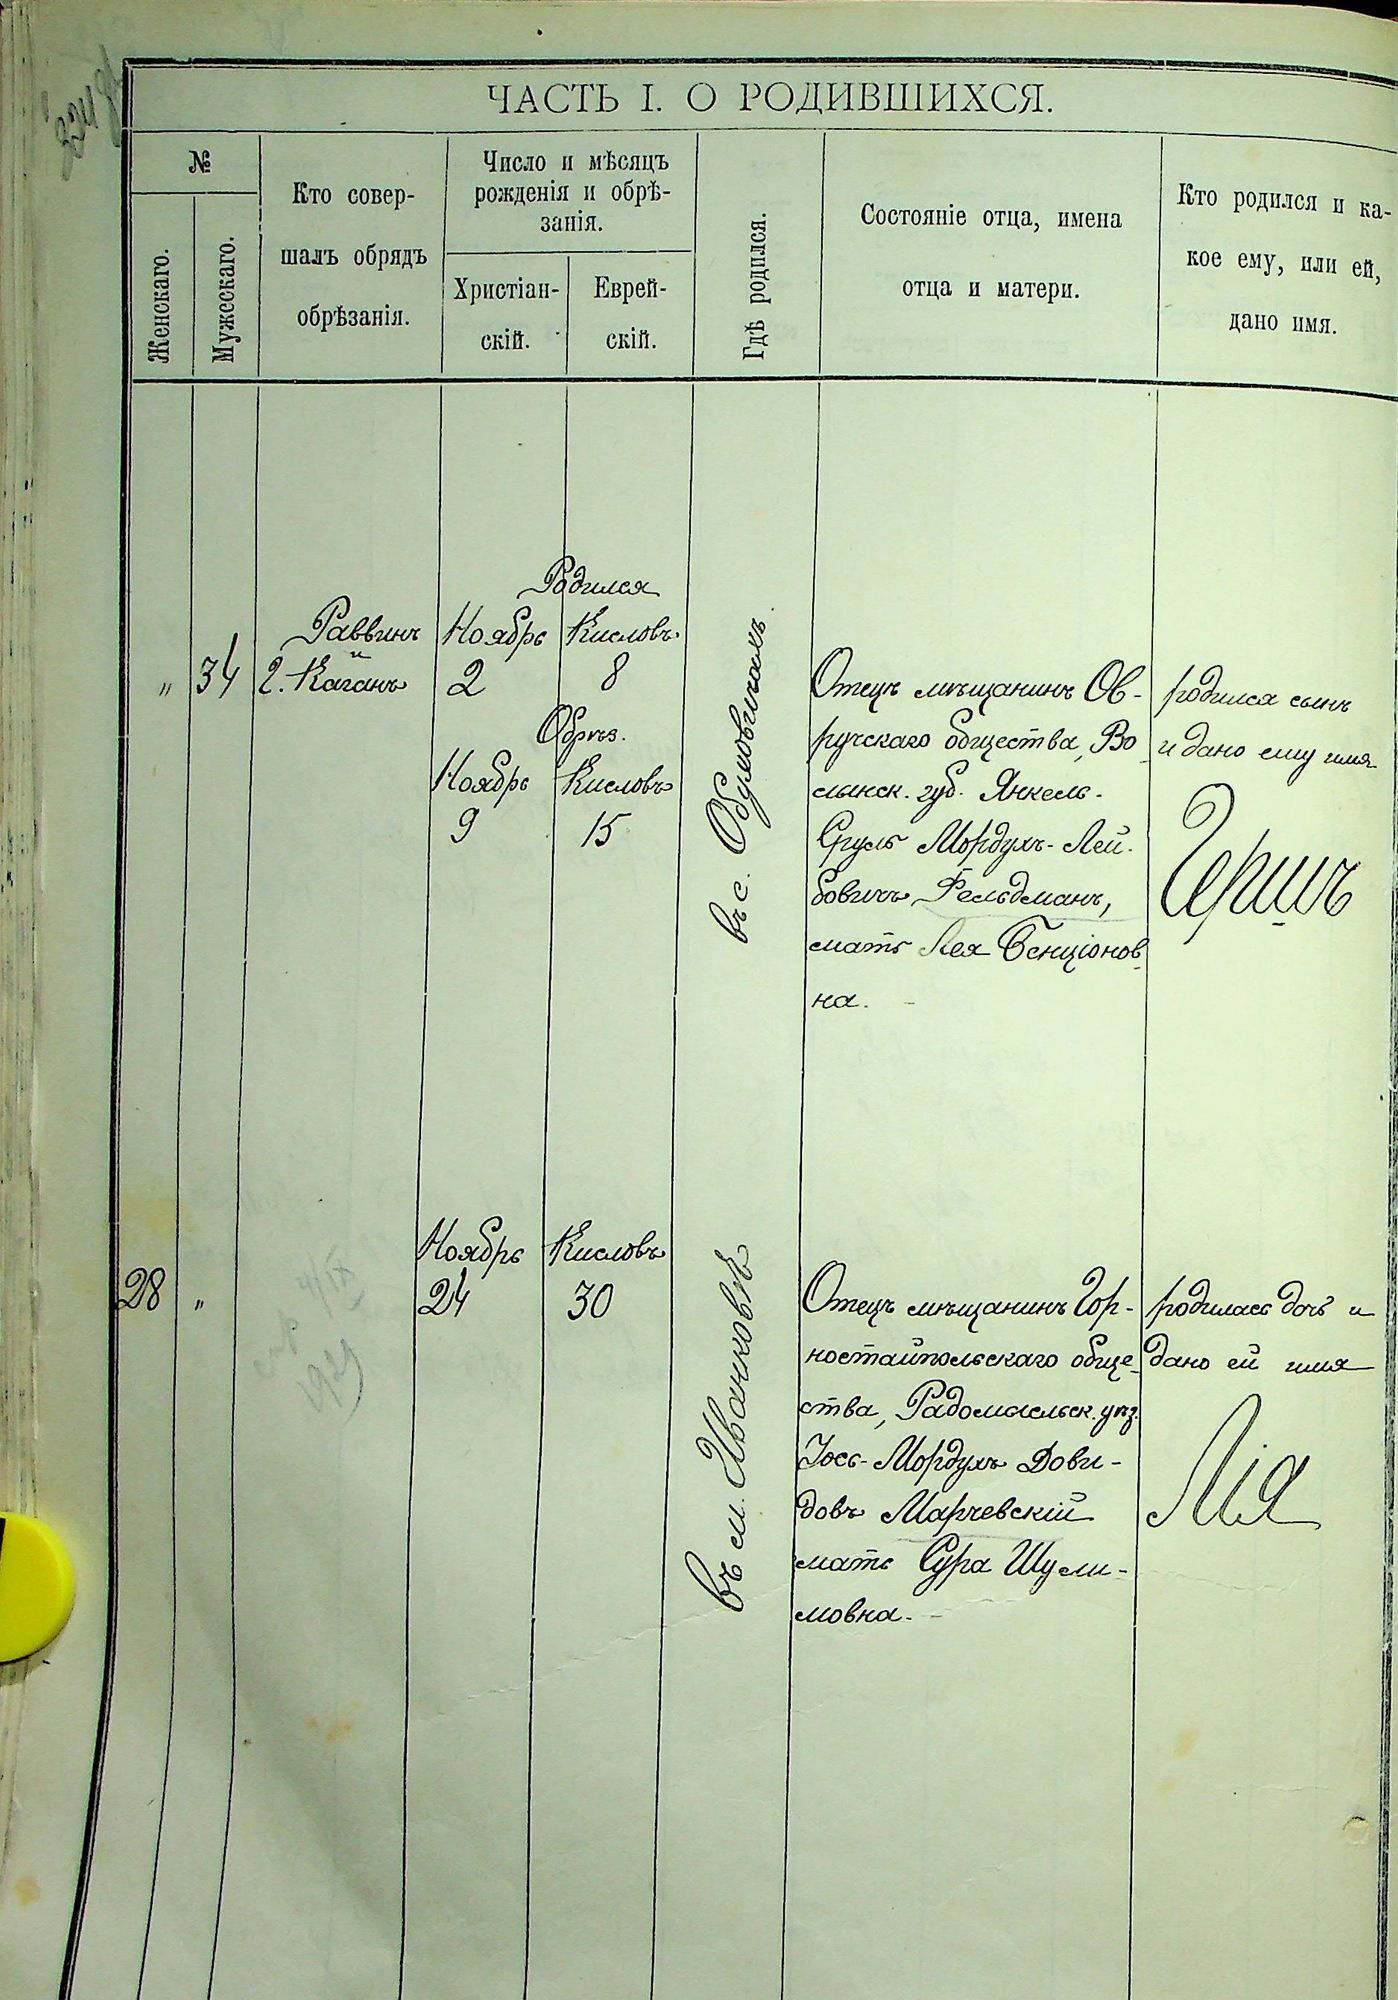 ЧАСТЬ I. О РОДИВШИХСЯ.
№
Женскаго.
Мужескаго.
Кто совер-
шалъ обрядъ
обрѣзанія.
Число и мѣсяцъ
рожденія и обрѣ-
занія.
Христіан-
скій.
Еврей-
скій.
Гдѣ родился.
Состояніе отца, имена
отца и матери.
Кто родился и ка-
кое ему, или ей,
дано имя.
„
34
Раввинъ
и
г. Каганъ
Родился
Ноябрь Кисловъ
2 8
Обрѣз.
Ноябрь Кисловъ
9 15
въ с. Обуховичахъ.
Отецъ мѣщанинъ Ов-
ручскаго общества, Во
лынск. губ. Янкель-
Сруль Мордухъ-Лей-
бовичъ Фельдманъ,
мать Лея Бенціонов-
на. -
родился сынъ
и дано ему имя
Гершъ
28
„
Ноябрь Кисловъ
24 30
въ м. Иванковѣ
Отецъ мѣщанинъ Гор-
ностайпольскаго обще-
ства, Радомысльск. уѣз.
Іось-Мордухъ Дови-
довъ Марчевскій
мать Сура Шули-
мовна. -
родилась дочь и
дано ей имя
Лія